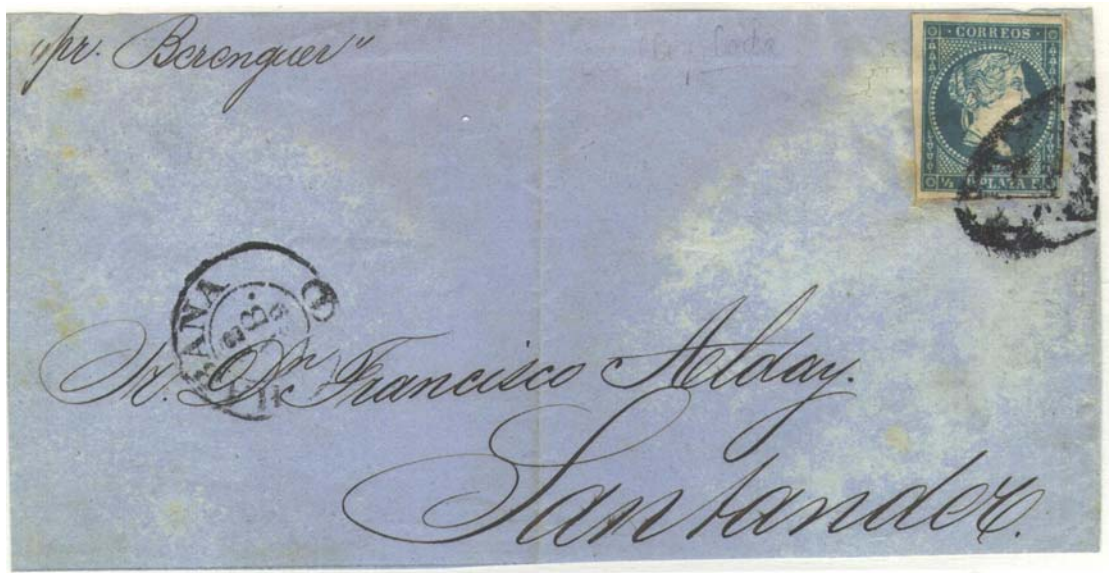 "pr. Berenguer"
CORREOS
½ R PLATA F
HABANA
Sr. Dn Francisco Alday.
Santander.